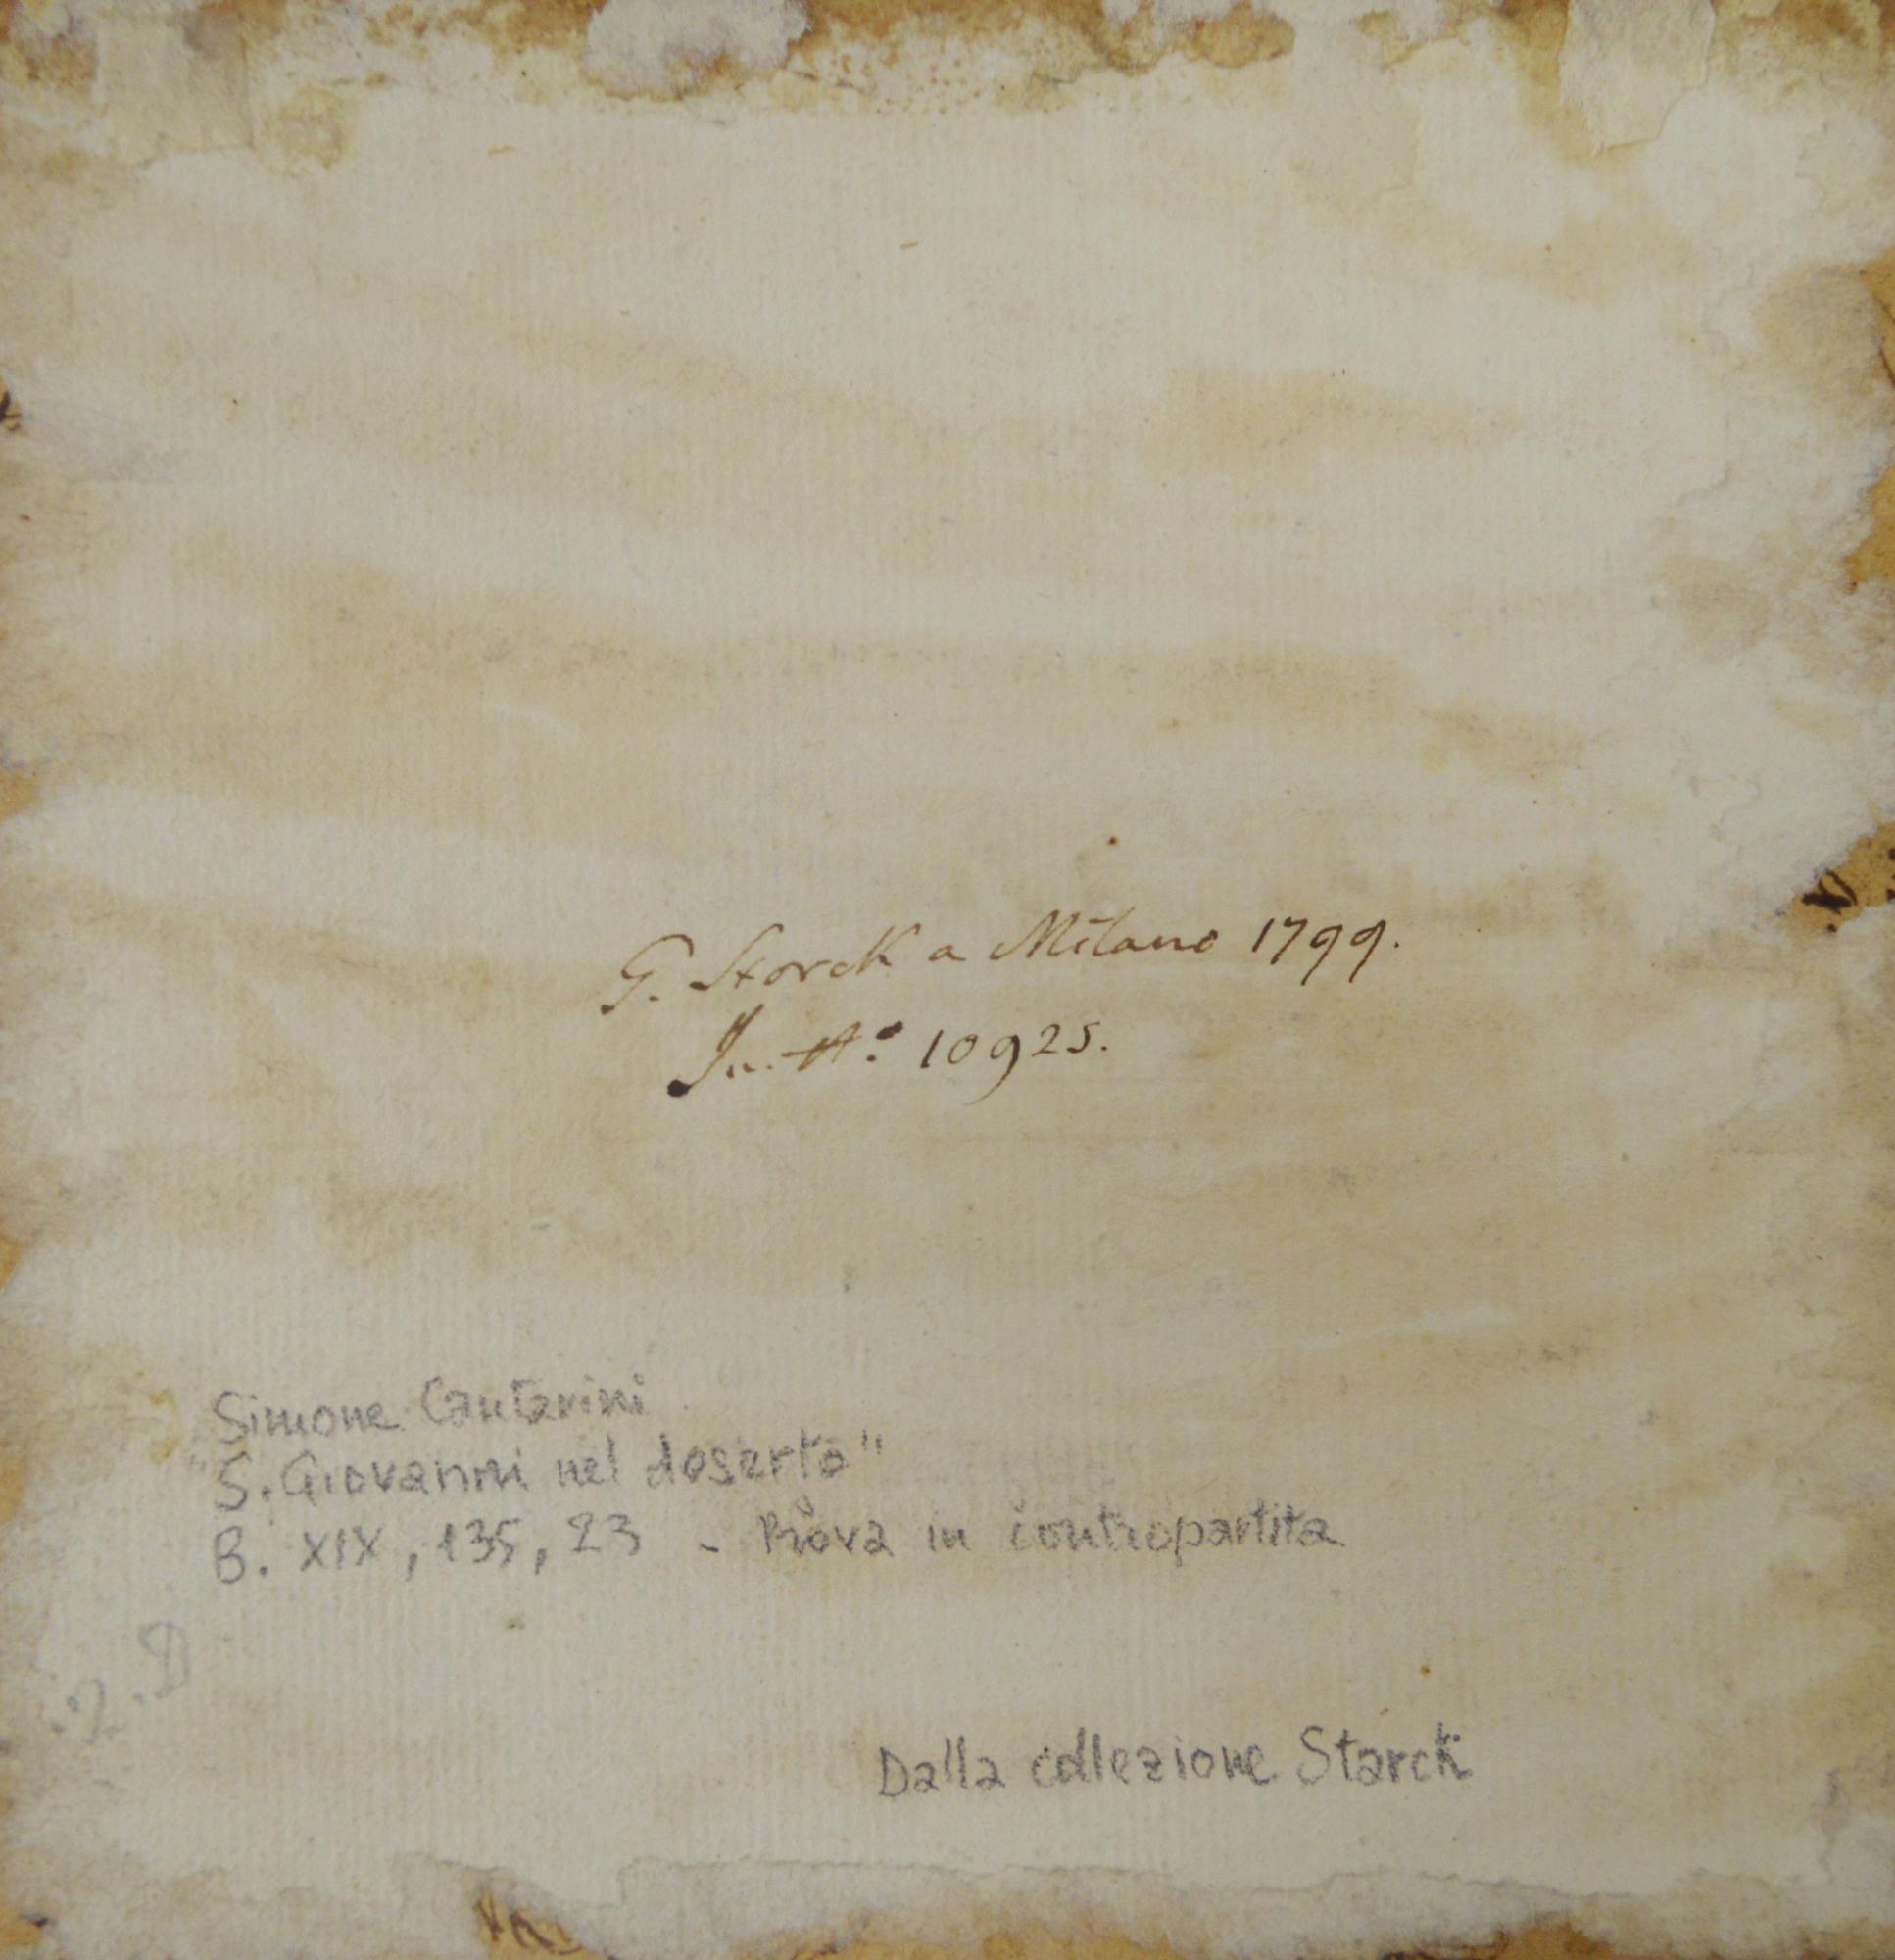 G. Storck a Milano 1799.
In. N.º 10925.
Simone Cantarini
"S. Giovanni nel deserto"
B. XIX, 135, 23 - Prova in contropartita
2. D
Dalla collezione Starck